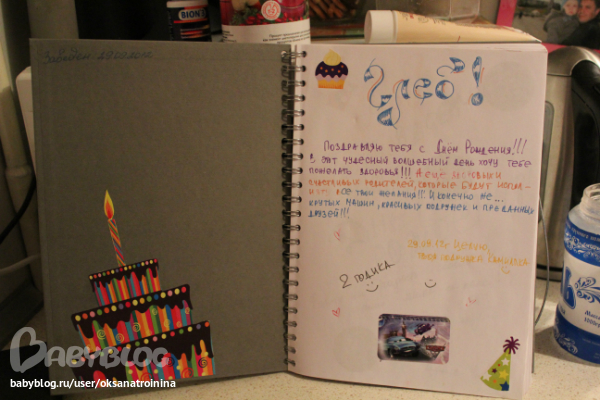 BION 3
Глеб!
Поздравляю тебя с Днём Рождения!!!
В этот чудесный волшебный день хочу тебе
пожелать здоровья!!! А ещё
родителей, которые будут испол-
нять все твои желания!! И конечно же...
крутых машин, красивых подружек и преданных
друзей!!!
Целую,
твоя подружка
2 годика
BABYBLOG
babyblog.ru/user/oksanatroinina